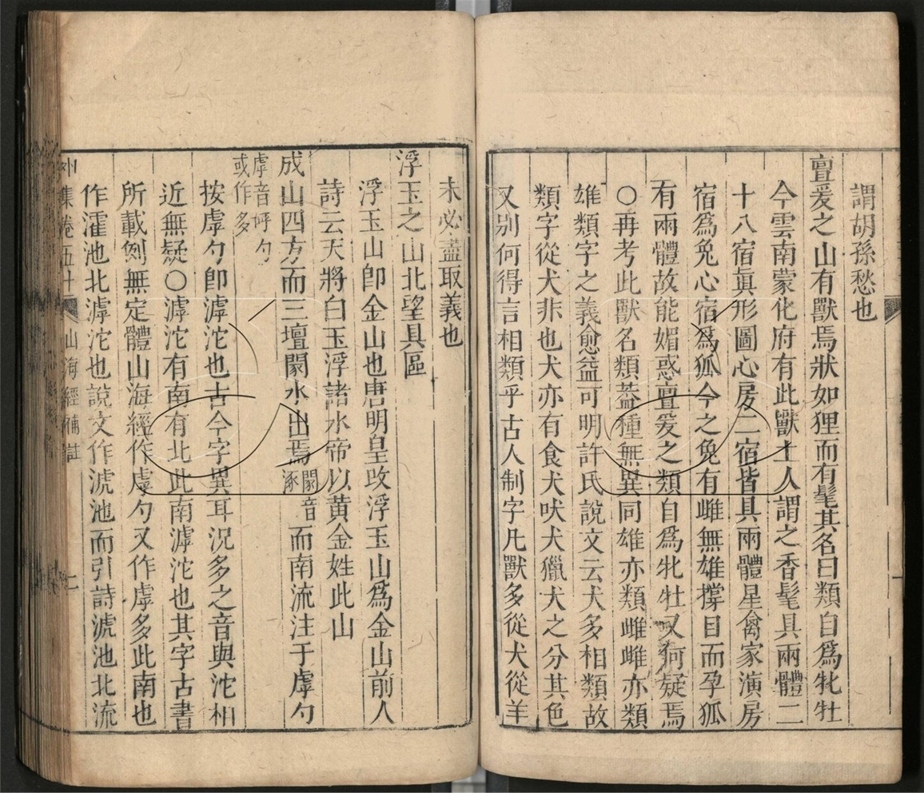 謂胡孫愁也
亶爰之山有獸焉狀如狸而有髦其名曰類自爲牝牡
今雲南蒙化府有此獸土人謂之香髦具兩體二
十八宿眞形圖心房二宿皆具兩體星禽家演房
宿爲兔心宿爲狐今之兔有雌無雄撐目而孕狐
有兩體故能媚惑亶爰之類自爲牝牡又何疑焉
○再考此獸名類蓋種無異同雄亦類雌雌亦類
雄類字之義愈益可明許氏說文云犬多相類故
類字從犬非也犬亦有食犬吠犬獵犬之分其色
又别何得言相類乎古人制字凡獸多從犬從羊
未必盡取義也
浮玉之山北望具區
浮玉山卽金山也唐明皇改浮玉山爲金山前人
詩云天將白玉浮諸水帝以黄金姓此山
成山四方而三壇閿水出焉閿音涿而南流注于虖勺
虖音呼勺或作多
按虖勺卽滹沱也古今字異耳況多之音與沱相
近無疑○滹沱有南有北此南滹沱也其字古書
所載例無定體山海經作虖勺又作虖多此南也
作滹池北滹沱也說文作淲池而引詩淲池北流
卜集卷五十 山海經補註 二